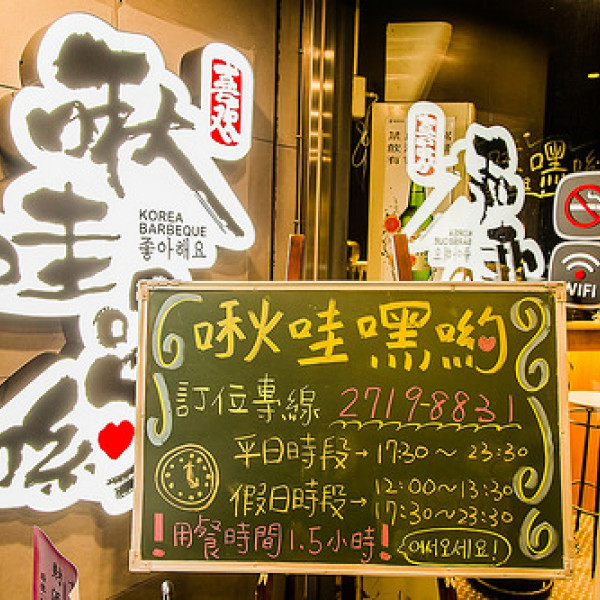 啾哇嘿喲
喜歡
KOREA
BARBEQUE
좋아해요
喜歡
嘿
WIFI
啾哇嘿喲
訂位專線 2719-8831
平日時段→17:30～23:30
假日時段→12:00～13:30
17:30～23:30
!用餐時間1.5小時!
어서오세요!